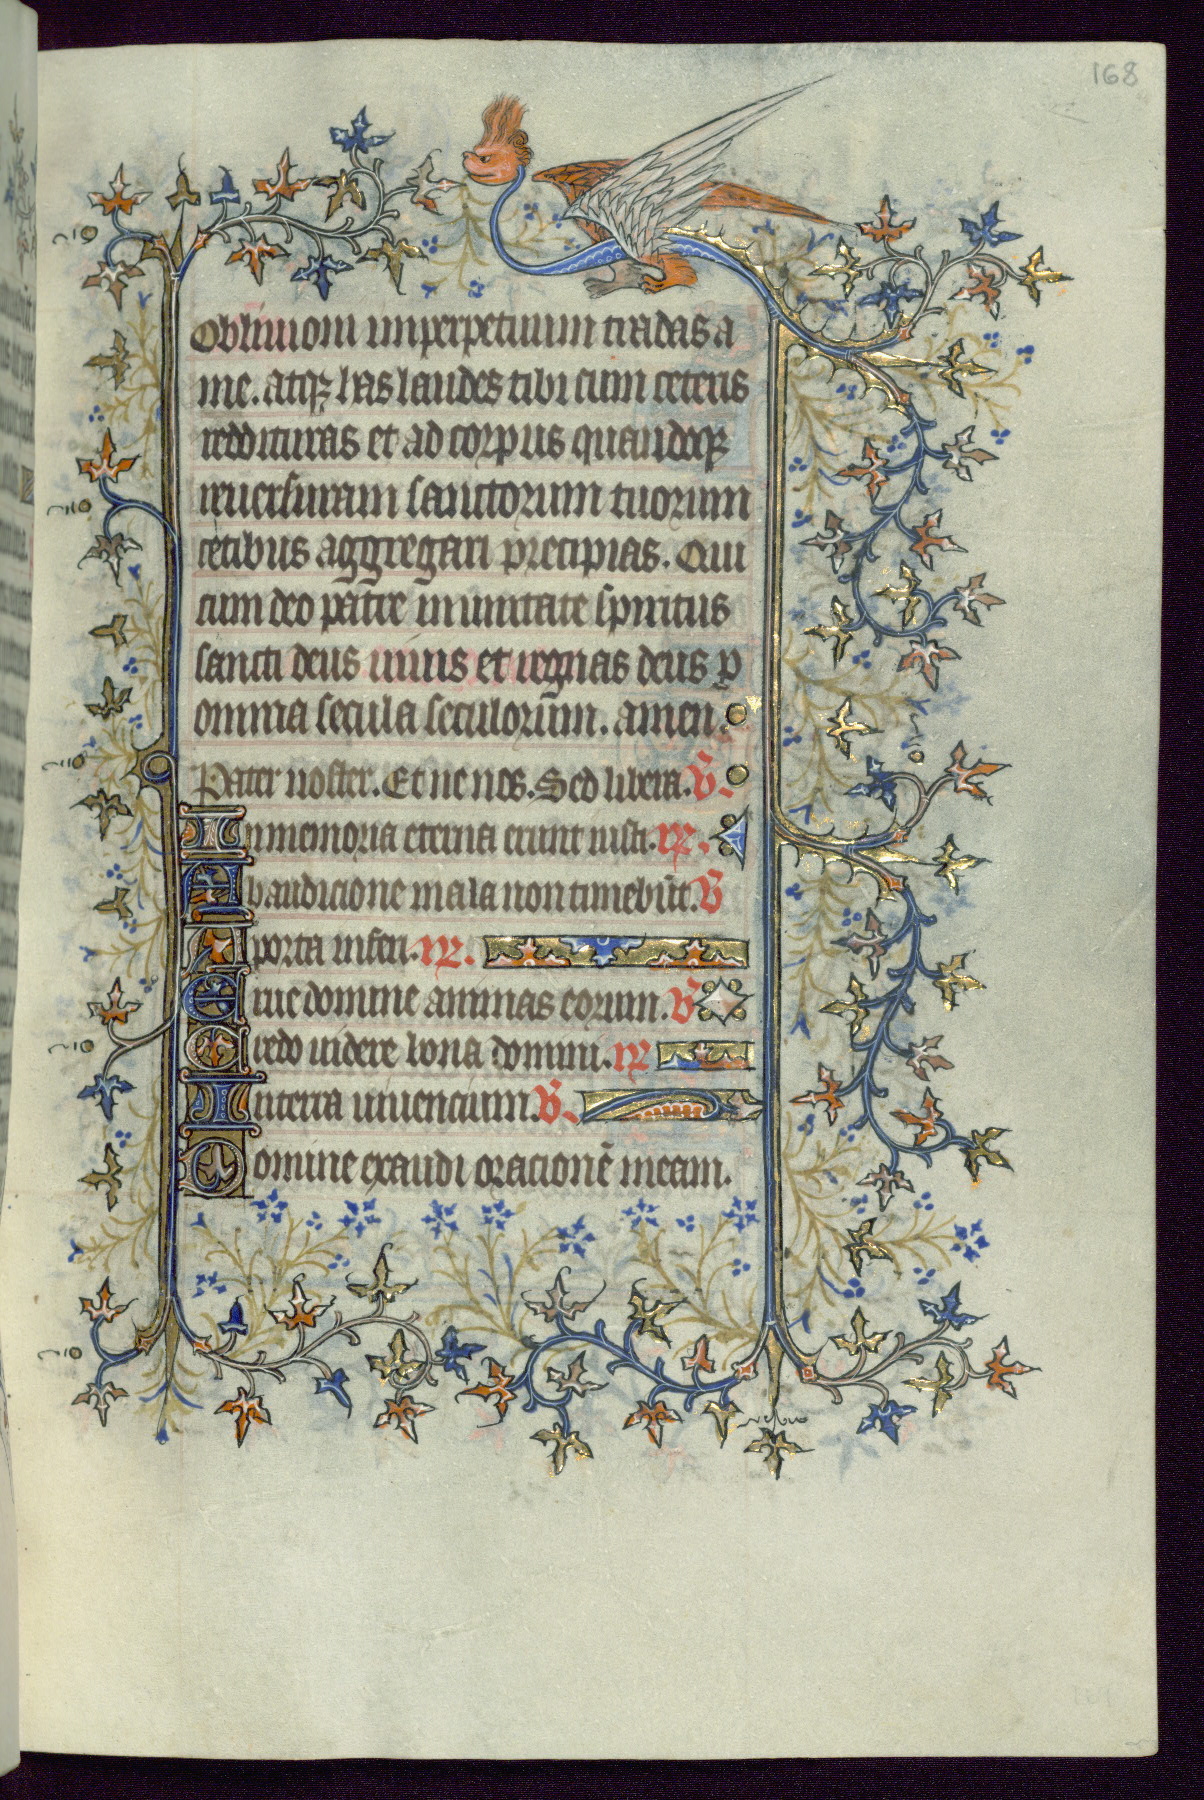 168
Obliuioni imperpetuum tradas a
me. atqꝫ has laudes tibi cum ceteris
reddituras et ad corpus quandoqꝫ
reuersuram sanctorum tuorum
cetibus aggregari precipias. Qui
cum deo patre in unitate spiritus
sancti deus uiuis et regnas deus ꝑ
omnia secula seculorum. amen.
Pater noster. Et ne nos. Sed libera. ℣.
In memoria eterna erunt iusti. ℟.
Ab audicione mala non timebūt. ℣
A porta inferi. ℟.
Erue domine animas eorum. ℣
Credo uidere bona domini. ℟
In terra uiuencium. ℣.
Domine exaudi oracionē meam.